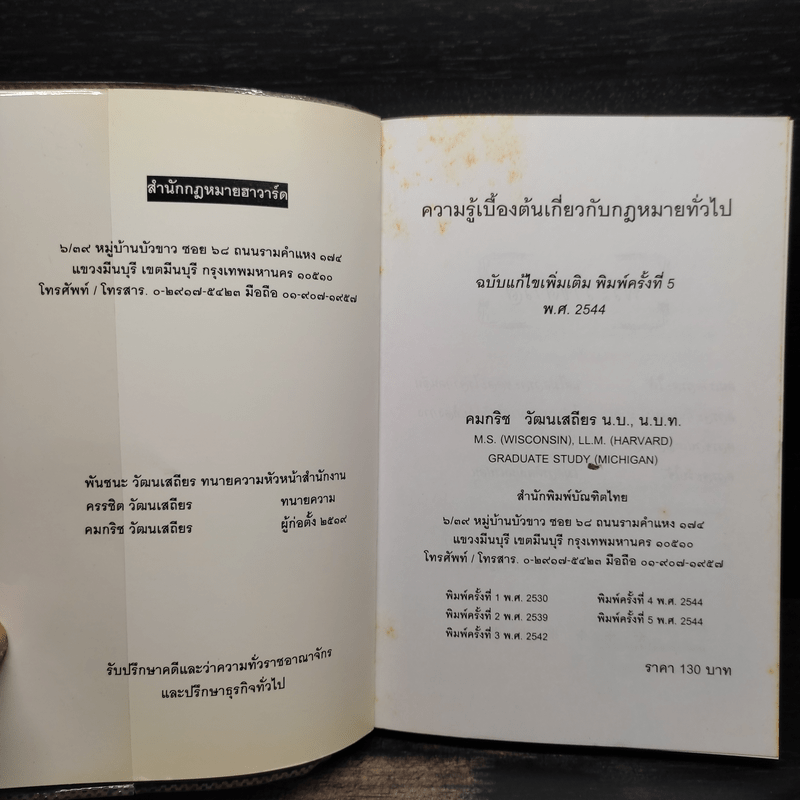 สำนักกฎหมายฮาวาร์ด
๖/๓๙ หมู่บ้านบัวขาว ซอย ๖๘ ถนนรามคำแหง ๑๗๔
แขวงมีนบุรี เขตมีนบุรี กรุงเทพมหานคร ๑๐๕๑๐
โทรศัพท์ / โทรสาร. ๐-๒๙๑๗-๕๔๒๓ มือถือ ๐๑-๙๐๗-๑๙๕๗
พันชนะ วัฒนเสถียร ทนายความหัวหน้าสำนักงาน
ครรชิต วัฒนเสถียร ทนายความ
คมกริช วัฒนเสถียร ผู้ก่อตั้ง ๒๕๑๙
รับปรึกษาคดีและว่าความทั่วราชอาณาจักร
และปรึกษาธุรกิจทั่วไป
ความรู้เบื้องต้นเกี่ยวกับกฎหมายทั่วไป
ฉบับแก้ไขเพิ่มเติม พิมพ์ครั้งที่ 5
พ.ศ. 2544
คมกริช วัฒนเสถียร น.บ., น.บ.ท.
M.S. (WISCONSIN), LL.M. (HARVARD)
GRADUATE STUDY (MICHIGAN)
สำนักพิมพ์บัณฑิตไทย
๖/๓๙ หมู่บ้านบัวขาว ซอย ๖๘ ถนนรามคำแหง ๑๗๔
แขวงมีนบุรี เขตมีนบุรี กรุงเทพมหานคร ๑๐๕๑๐
โทรศัพท์ / โทรสาร. ๐-๒๙๑๗-๕๔๒๓ มือถือ ๐๑-๙๐๗-๑๙๕๗
พิมพ์ครั้งที่ 1 พ.ศ. 2530 พิมพ์ครั้งที่ 4 พ.ศ. 2544
พิมพ์ครั้งที่ 2 พ.ศ. 2539 พิมพ์ครั้งที่ 5 พ.ศ. 2544
พิมพ์ครั้งที่ 3 พ.ศ. 2542
ราคา 130 บาท